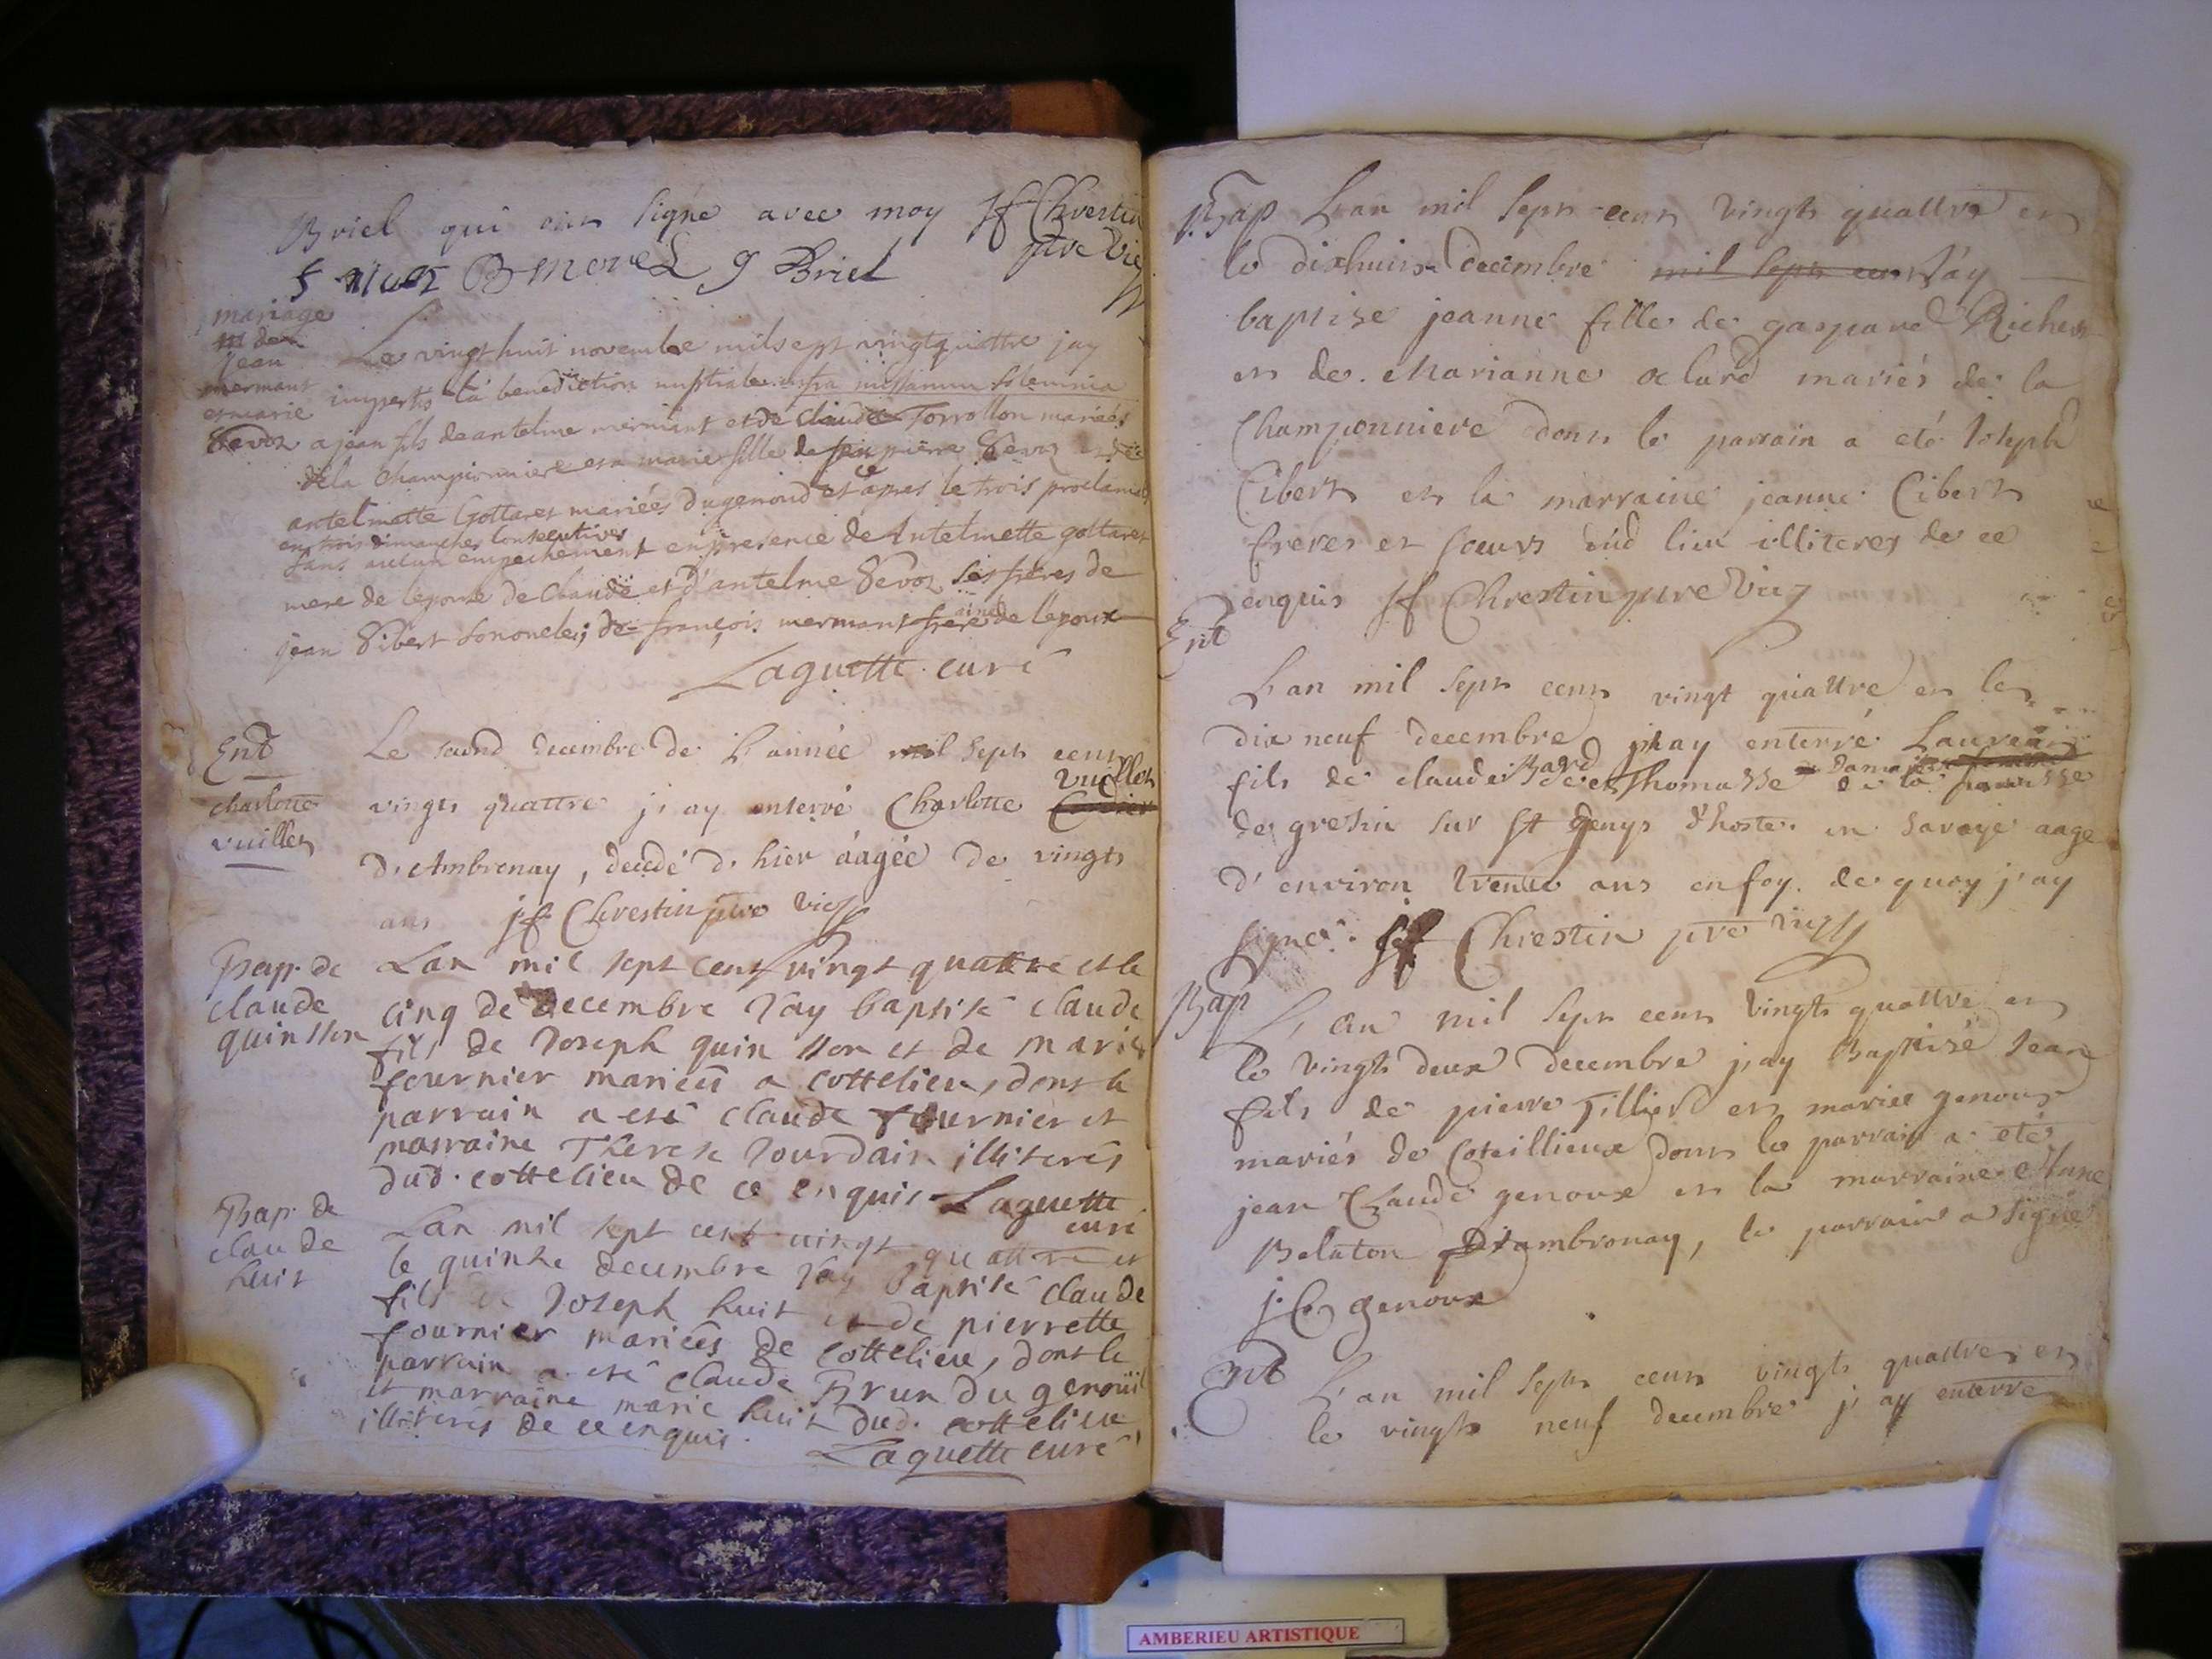 Briel qui ont signé avec moy Jf Chrestin
ptre vic
B morel g Briel
mariage
de
jean
mermant
et marie
Sevoz
Le vingt huit novembre mil sept vingt quattre jay
imparti la benediction nuptiale infra missarum solemnia
a jean fils de antelme mermant et de Claude Torrollon mariés
de la Championniere et a marie fille de pierre Sevoz et de
antelmette Gottaret mariées du genoud et apres le trois proclamats
en trois dimanches consecutives
sans aucun empechement en presence de Antelmette gottaret
mere de lepouse de Claude et d'antelme Sevoz ses freres de
jean Sibert son oncle; de françois mermant frere ainé de lepoux
Laguette curé
Ent
Charlotte
vuillet
Le second decembre de L'année mil sept cent
vingt quattre j'ay enterré Charlotte vuillet
d'Ambronay, decedé d'hier áagée de vingt
ans jf Chrestin ptre vic
Bap. de
claude
quinson
Lan mil sept cent vingt quattre et le
cinq de decembre Jay baptisé claude
fils de Joseph quinson et de marie
fournier mariées a cottelieu, dont le
parrain a esté claude fournier et
marraine Therese Jourdain illiterés
dud. cottelieu de ce enquis Laguette
curé
Bap. de
claude
huit
Lan mil sept cent vingt quattre et
le quinze decembre Jay baptisé claude
fils de Joseph huit et de pierrette
fournier mariées de cottelieu, dont le
parrain a esté claude Brun du genoüil
et marraine marie huit dud. cottelieu
illiterés de ce enquis.
Laguette curé
Bap L'an mil sept cent vingt quattre et
le dixhuit decembre mil sept cent j'ay
baptisé jeanne fille de gaspard Richer
et de Marianne alard mariés de la
Championniere dont le parrain a eté Joseph
Cibert et la marraine jeanne Cibert
freres et soeurs dud lieu illiteres de ce
enquis Jf Chrestin ptre vic
Ent
L'an mil sept cent vingt quattre et le
dix neuf decembre j'ay enterré Laurent
fils de claude Bard et de Thomasse de la parroisse
de gresin sur St genys d'hoste en Savoye aage
d'environ trente ans en foy de quoy j'ay
signé. Jf Chrestin ptre vic
Bap
L'an mil sept cent vingt quattre et
le vingt deux decembre j'ay Baptisé Jean
fils de pierre Tillier et marie genoux
mariés de Coteillieux dont le parrain a eté
jean Claude genoux et la marraine Anne
Belaton d'ambronay, le parrain a signé
j. C genoux
Ent
L'an mil sept cent vingt quattre et
le vingt neuf decembre j'ay enterré
AMBERIEU ARTISTIQUE